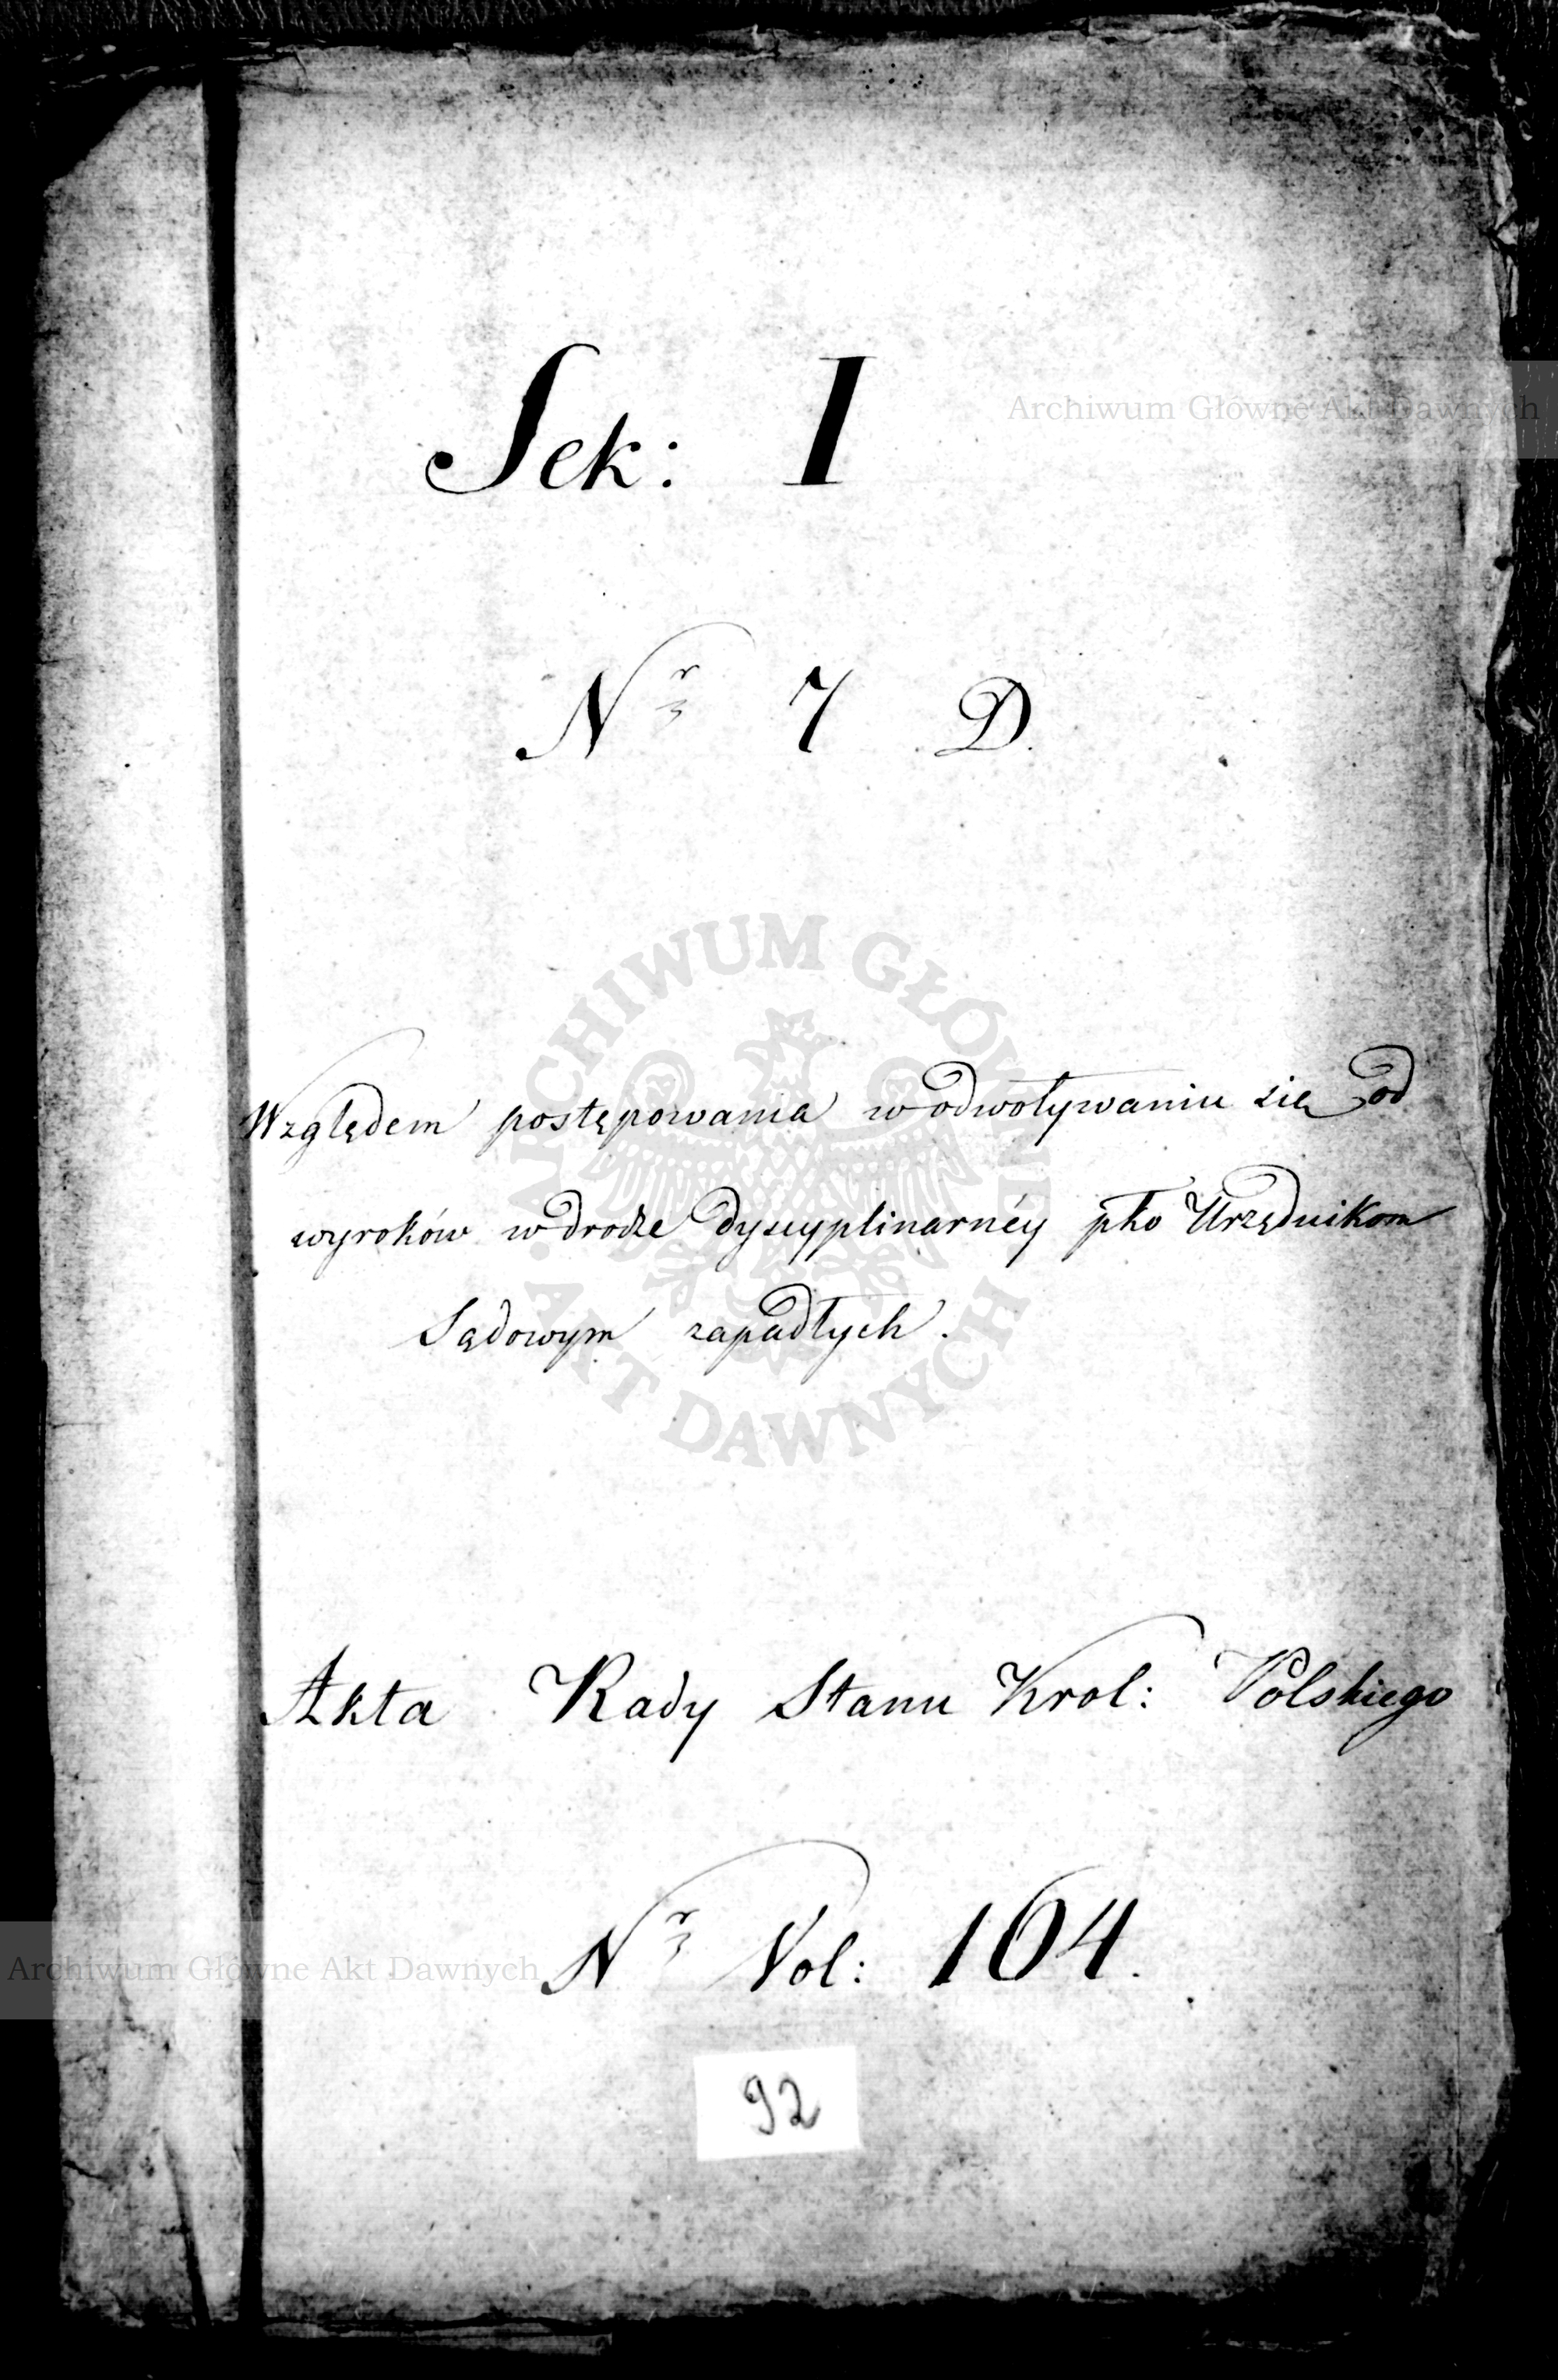 Sek: I
Archiwum Główne Akt Dawnych
Nr 7 D.
ARCHIWUM GŁÓWNE AKT DAWNYCH
Względem postępowania w odwoływaniu się od
wyroków w drodze dyscyplinarnéy pko Urzędnikom
Sądowym zapadłych.
Akta Rady Stanu Krol: Polskiego
Nr Vol: 164.
Archiwum Główne Akt Dawnych
92